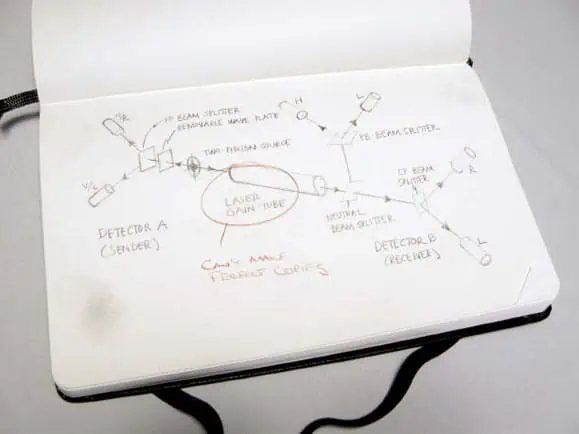 H/R
PP BEAM SPLITTER
REMOVABLE WAVE PLATE
V/L
TWO-PHOTON SOURCE
LASER
GAIN TUBE
DETECTOR A
(SENDER)
CAN'T MAKE
PERFECT COPIES
H
L
PP BEAM SPLITTER
NEUTRAL
BEAM SPLITTER
CP BEAM
SPLITTER
R
L
DETECTOR B
(RECEIVER)